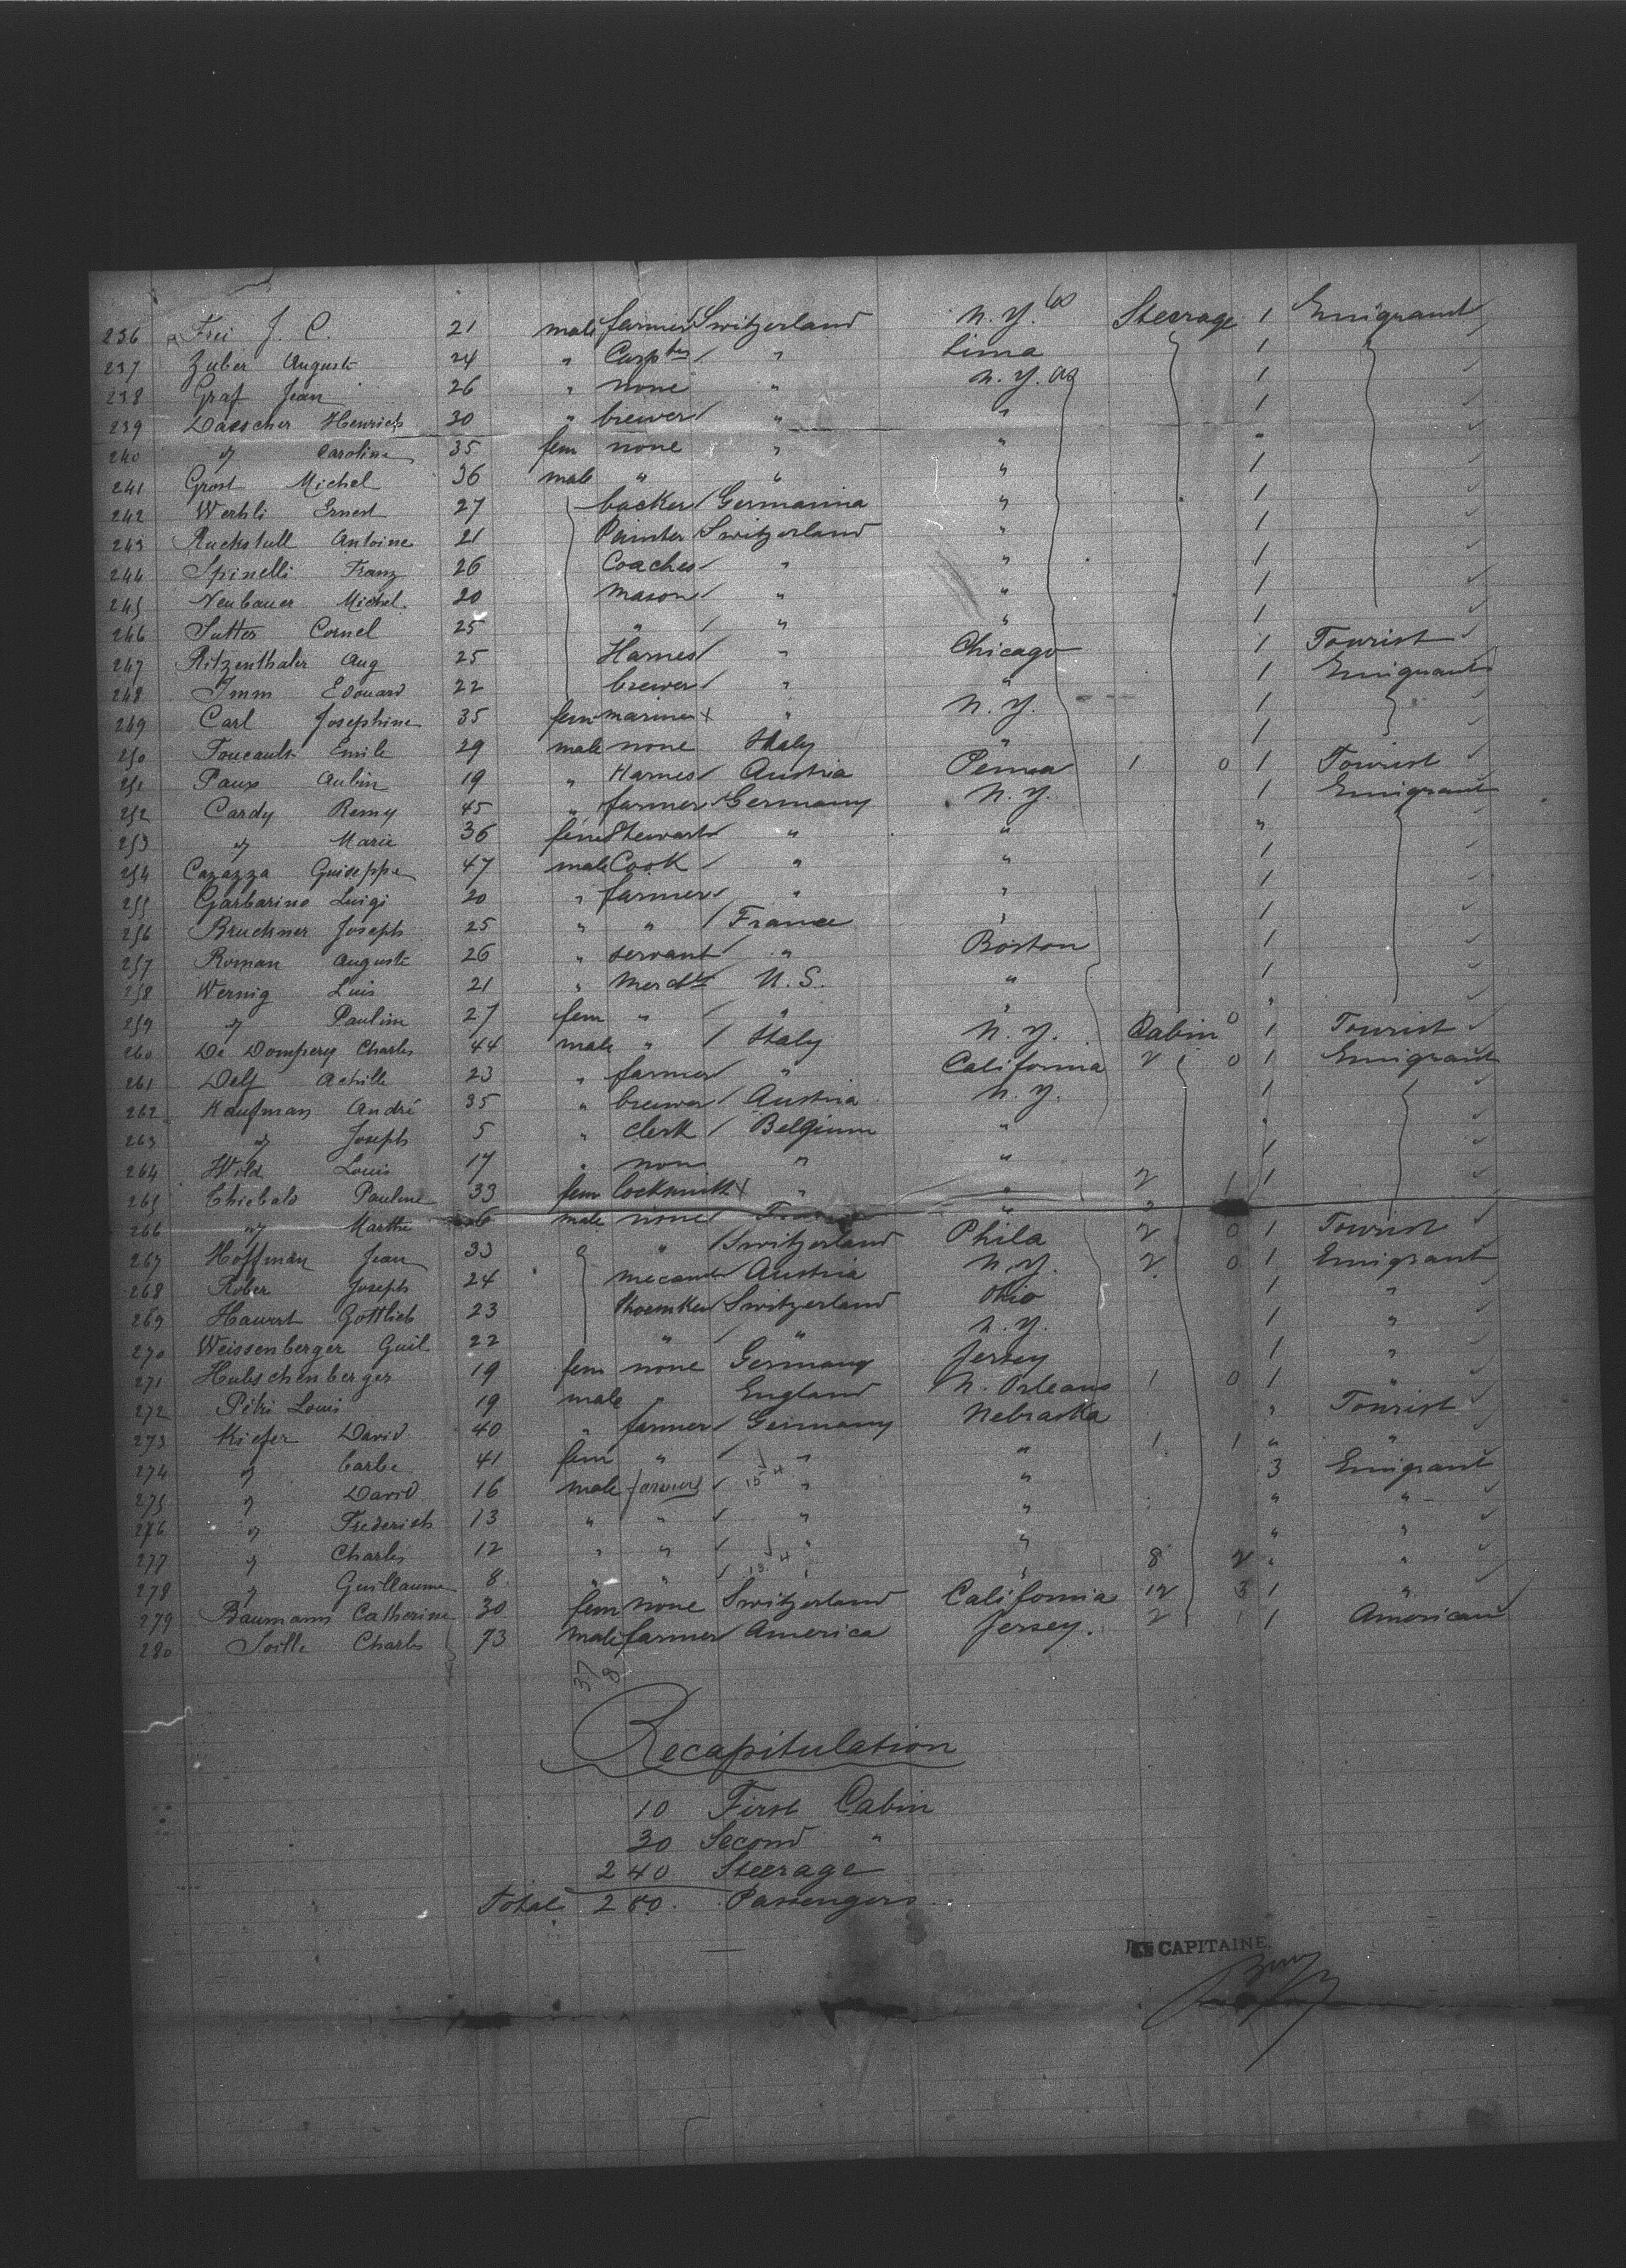 236 Frei J. C. 21 male farmer Switzerland N.Y. Steerage 1 Emigrant
237 Zuber Auguste 24 " Carpter " Lima 1
238 Graf Jean 26 " none " N.Y. 1
239 Daescher Henrich 30 " brewer " " 1
240 " Caroline 35 fem none " " "
241 Grost Michel 36 male " " " 1
242 Werhli Ernest 27 backer Germanina " 1
243 Ruckstull Antoine 21 Painter Switzerland " 1
244 Spinelli Franz 26 Coaches " " 1
245 Neubauer Michel. 20 mason " " 1
246 Sutter Cornel 25 " " " 1
247 Ritzenthaler Aug 25 Harnes " Chicago 1 Tourist
248 Imm Edouard 22 brewer " " 1 Emigrant
249 Carl Josephine 35 fem mariner " N.Y. 1
250 Foucault Emile 29 male none Italy " 1
251 Paux Aubin 19 " Harnes Austria Penna 1 0 1 Tourist
252 Cardy Remy 45 " farmer Germany N.Y. 1 Emigrant
253 " Marie 36 fem Stewart " " "
254 Cazazza Guiseppe 47 male Cook " " 1
255 Garbarino Luigi 20 " farmer " " 1
256 Bruckner Joseph 25 " " France " 1
257 Roman Auguste 26 " servant " Boston 1
258 Wernig Luis 21 " Merchts U.S. " 1
259 " Pauline 27 fem " " " "
260 De Dompery Charles 44 male " Italy N.Y. Cabin 0 1 Tourist
261 Delf Achille 23 " farmer " California 2 0 1 Emigrant
262 Kaufman André 35 " brewer Austria N.Y. 1
263 " Joseph 5 " Clerk Belgium " "
264 Wild Louis 17 " non " " 1
265 Chiebalo Pauline 33 fem locksmith " " 2 1 1
266 " Marthe 6 male none " 2
267 Hoffman Jean 33 " Switzerland Phila 2 0 1 Tourist
268 Rober Joseph 24 Austria N.Y. 2 0 1 Emigrant
269 Hauert Gottlieb 23 Switzerland Ohio 1 "
270 Weissenberger Guil. 22 " " N.Y. 1 "
271 Hubschenberger 19 fem none Germany Jersey 1 "
272 Petri Louis 19 male " England N. Orleans 1 0 1 "
273 Kiefer David 40 " farmer Germany Nebraska " Tourist
274 " Carbe 41 fem " " " 1 1 " "
275 " David 16 male farmers " " 3 Emigrant
276 " Frederich 13 " " " " " "
277 " Charles 12 " " " " " "
278 " Guillaume 8 " " " " 8 2 " "
279 Baumann Catherine 30 fem none Switzerland California 12 3 1 "
280 Soille Charles 73 male farmer America Jersey. 2 1 1 American
37 8
Recapitulation
10 First Cabin
30 Second "
240 Steerage
Total 280. Passengers
CAPITAINE.